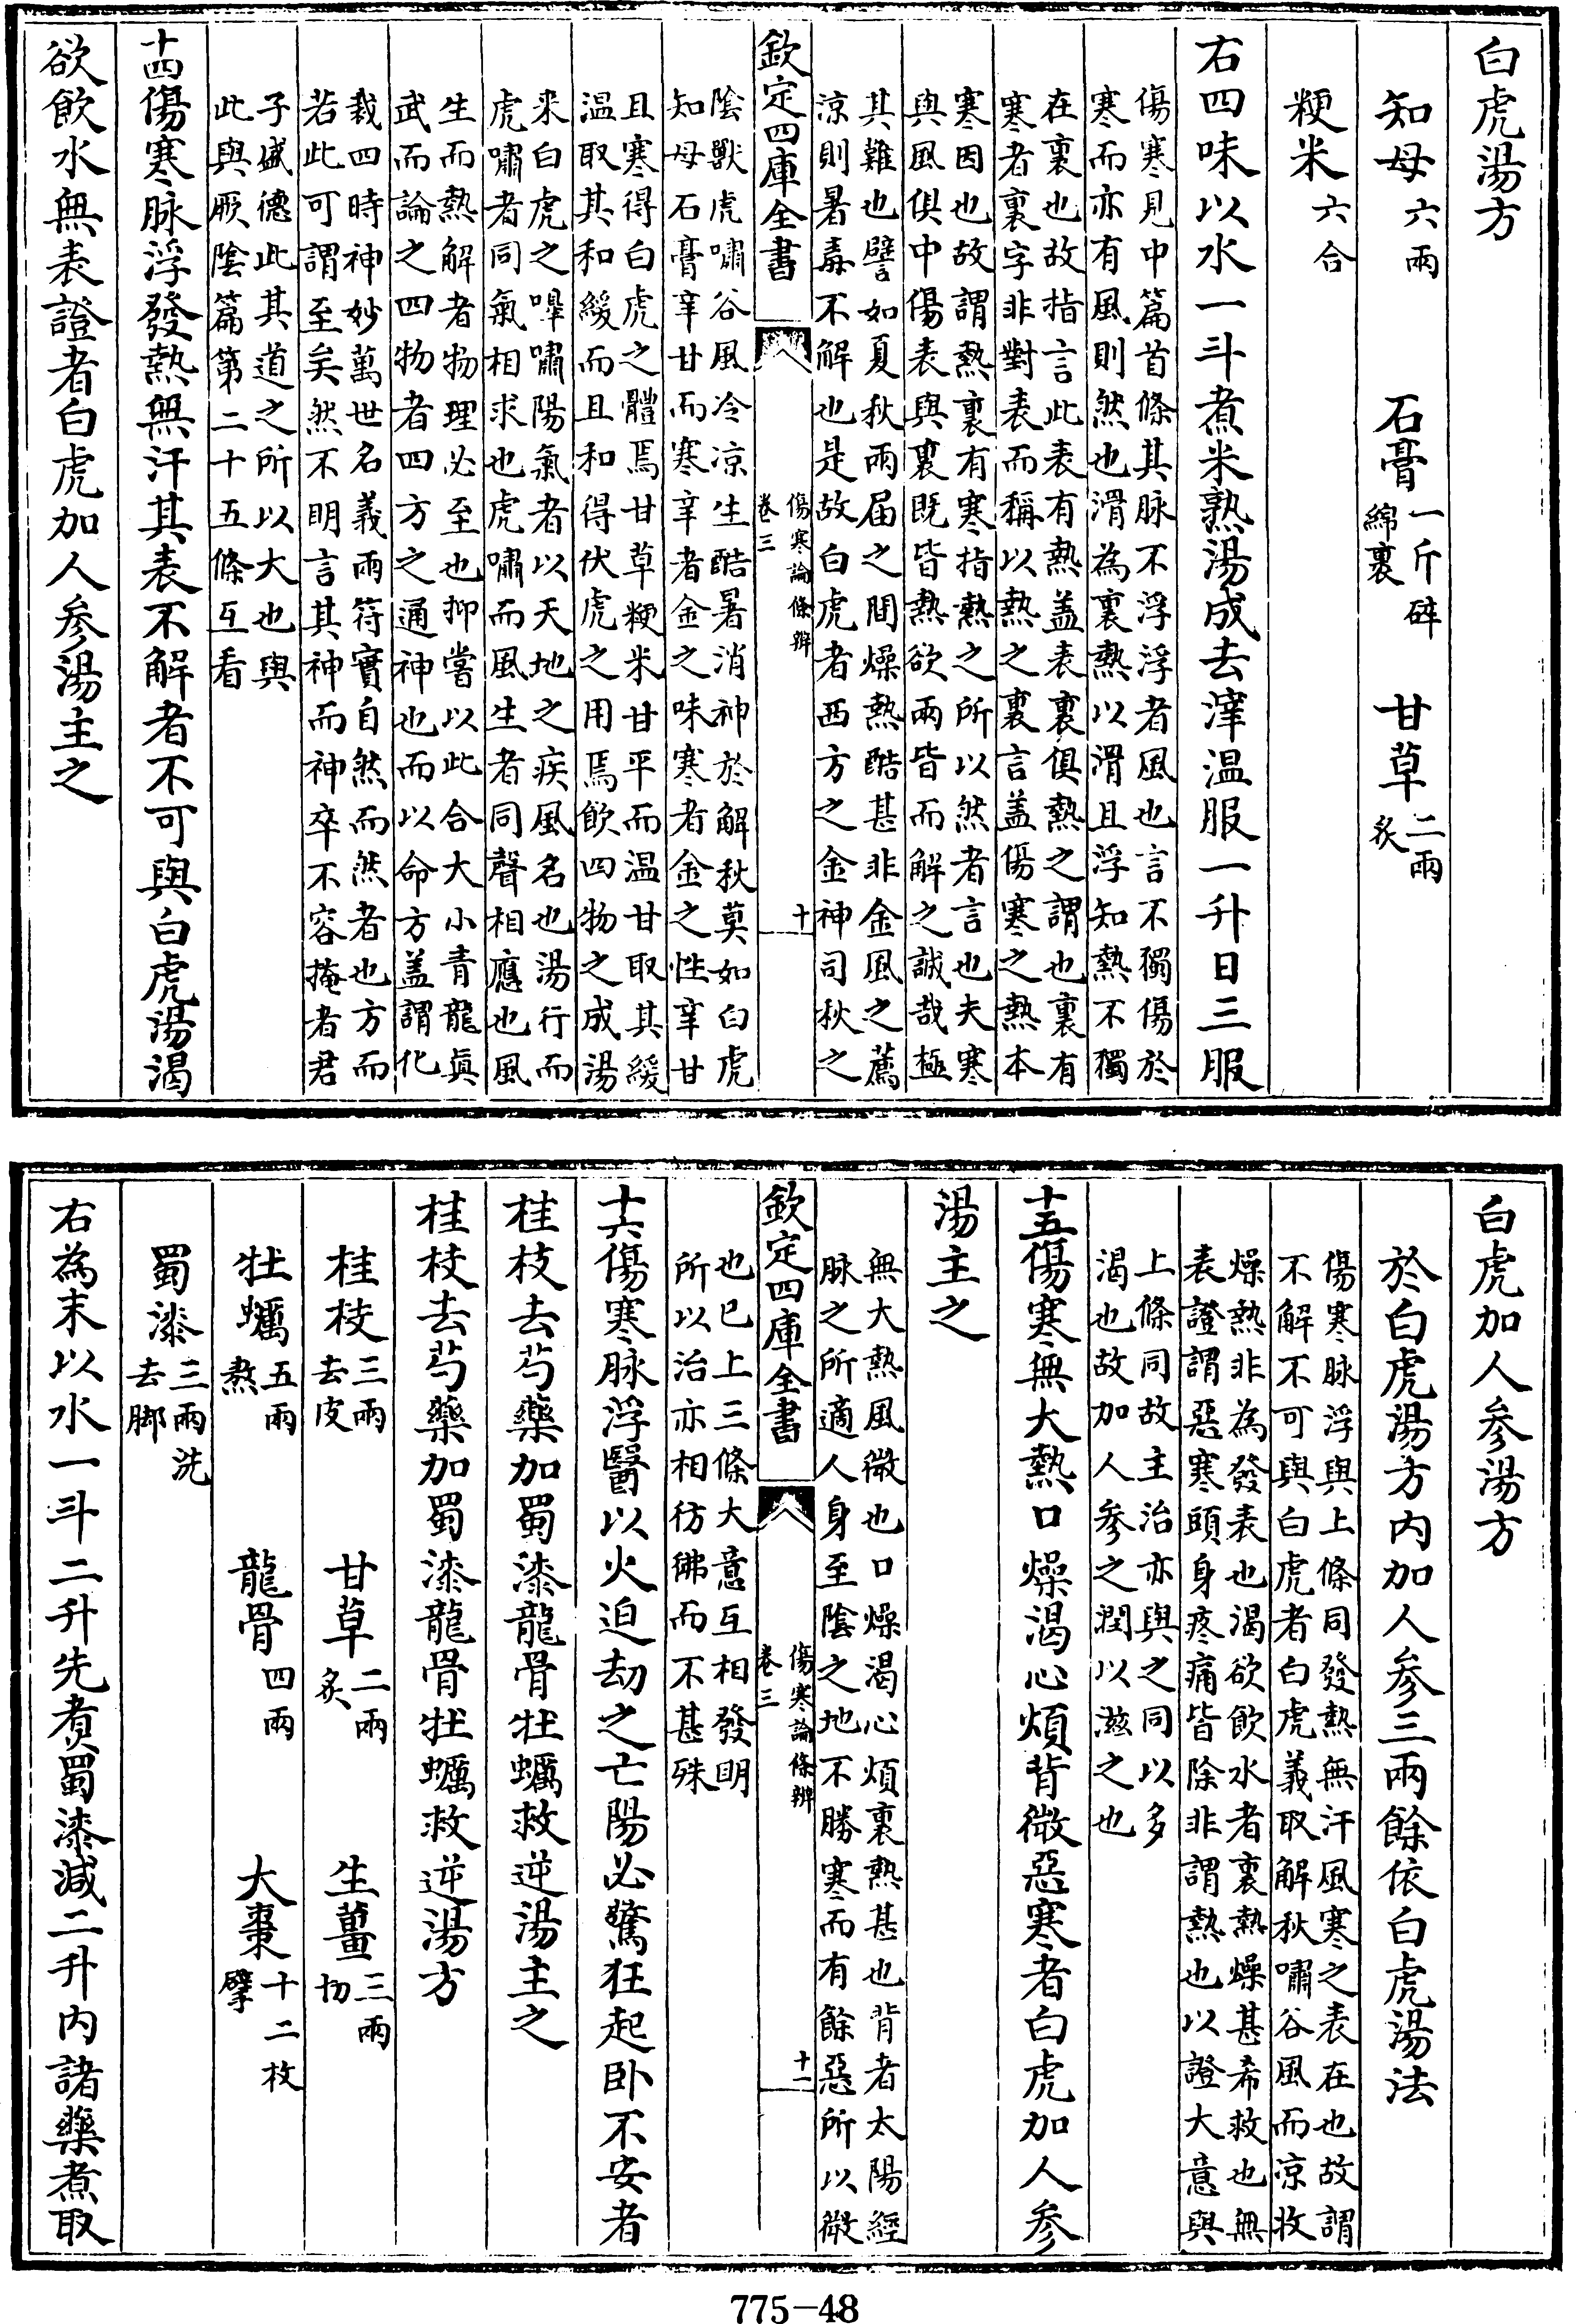 白虎湯方
知母六兩　石膏一斤碎綿裹　甘草二兩炙
粳米六合
右四味以水一斗煮米熟湯成去滓温服一升日三服
傷寒見中篇首條其脉不浮浮者風也言不獨傷於
寒而亦有風則然也滑為裏熱以滑且浮知熱不獨
在裏也故指言此表有熱盖表裏俱熱之謂也裏有
寒者裏字非對表而稱以熱之裏言盖傷寒之熱本
寒因也故謂熱裏有寒指熱之所以然者言也夫寒
與風俱中傷表與裏既皆熱欲兩皆而解之誠哉極
其難也譬如夏秋兩届之間燥熱酷甚非金風之薦
涼則暑毒不解也是故白虎者西方之金神司秋之
欽定四庫全書
傷寒論條辨
卷三
十
陰獸虎嘯谷風冷涼生酷暑消神於解秋莫如白虎
知母石膏辛甘而寒辛者金之味寒者金之性辛甘
且寒得白虎之體焉甘草粳米甘平而温甘取其緩
温取其和緩而且和得伏虎之用焉飲四物之成湯
来白虎之嘷嘯陽氣者以天地之疾風名也湯行而
虎嘯者同氣相求也虎嘯而風生者同聲相應也風
生而熱解者物理必至也抑嘗以此合大小青龍真
武而論之四物者四方之通神也而以命方盖謂化
裁四時神妙萬世名義兩符實自然而然者也方而
若此可謂至矣然不明言其神而神卒不容掩者君
子盛德此其道之所以大也與
此與厥陰篇第二十五條互看
十四傷寒脉浮發熱無汗其表不解者不可與白虎湯渴
欲飲水無表證者白虎加人參湯主之
白虎加人參湯方
於白虎湯方內加人參三兩餘依白虎湯法
傷寒脉浮與上條同發熱無汗風寒之表在也故謂
不解不可與白虎者白虎義取解秋嘯谷風而凉收
燥熱非為發表也渴欲飲水者裏熱燥甚希救也無
表證謂惡寒頭身疼痛皆除非謂熱也以證大意與
上條同故主治亦與之同以多
渴也故加人參之潤以滋之也
十五傷寒無大熱口燥渴心煩背微惡寒者白虎加人參
湯主之
無大熱風微也口燥渴心煩裏熱甚也背者太陽經
脉之所適人身至陰之地不勝寒而有餘惡所以微
欽定四庫全書
傷寒論條辨
卷三
十一
也已上三條大意互相發明
所以治亦相彷彿而不甚殊
十六傷寒脉浮醫以火迫劫之亡陽必驚狂起卧不安者
桂枝去芍藥加蜀漆龍骨牡蠣救逆湯主之
桂枝去芍藥加蜀漆龍骨牡蠣救逆湯方
桂枝三兩去皮　甘草二兩炙　生薑三兩切
牡蠣五兩熬　龍骨四兩　大棗十二枚擘
蜀漆三兩洗去脚
右為末以水一斗二升先煮蜀漆減二升內諸藥煮取
775-48